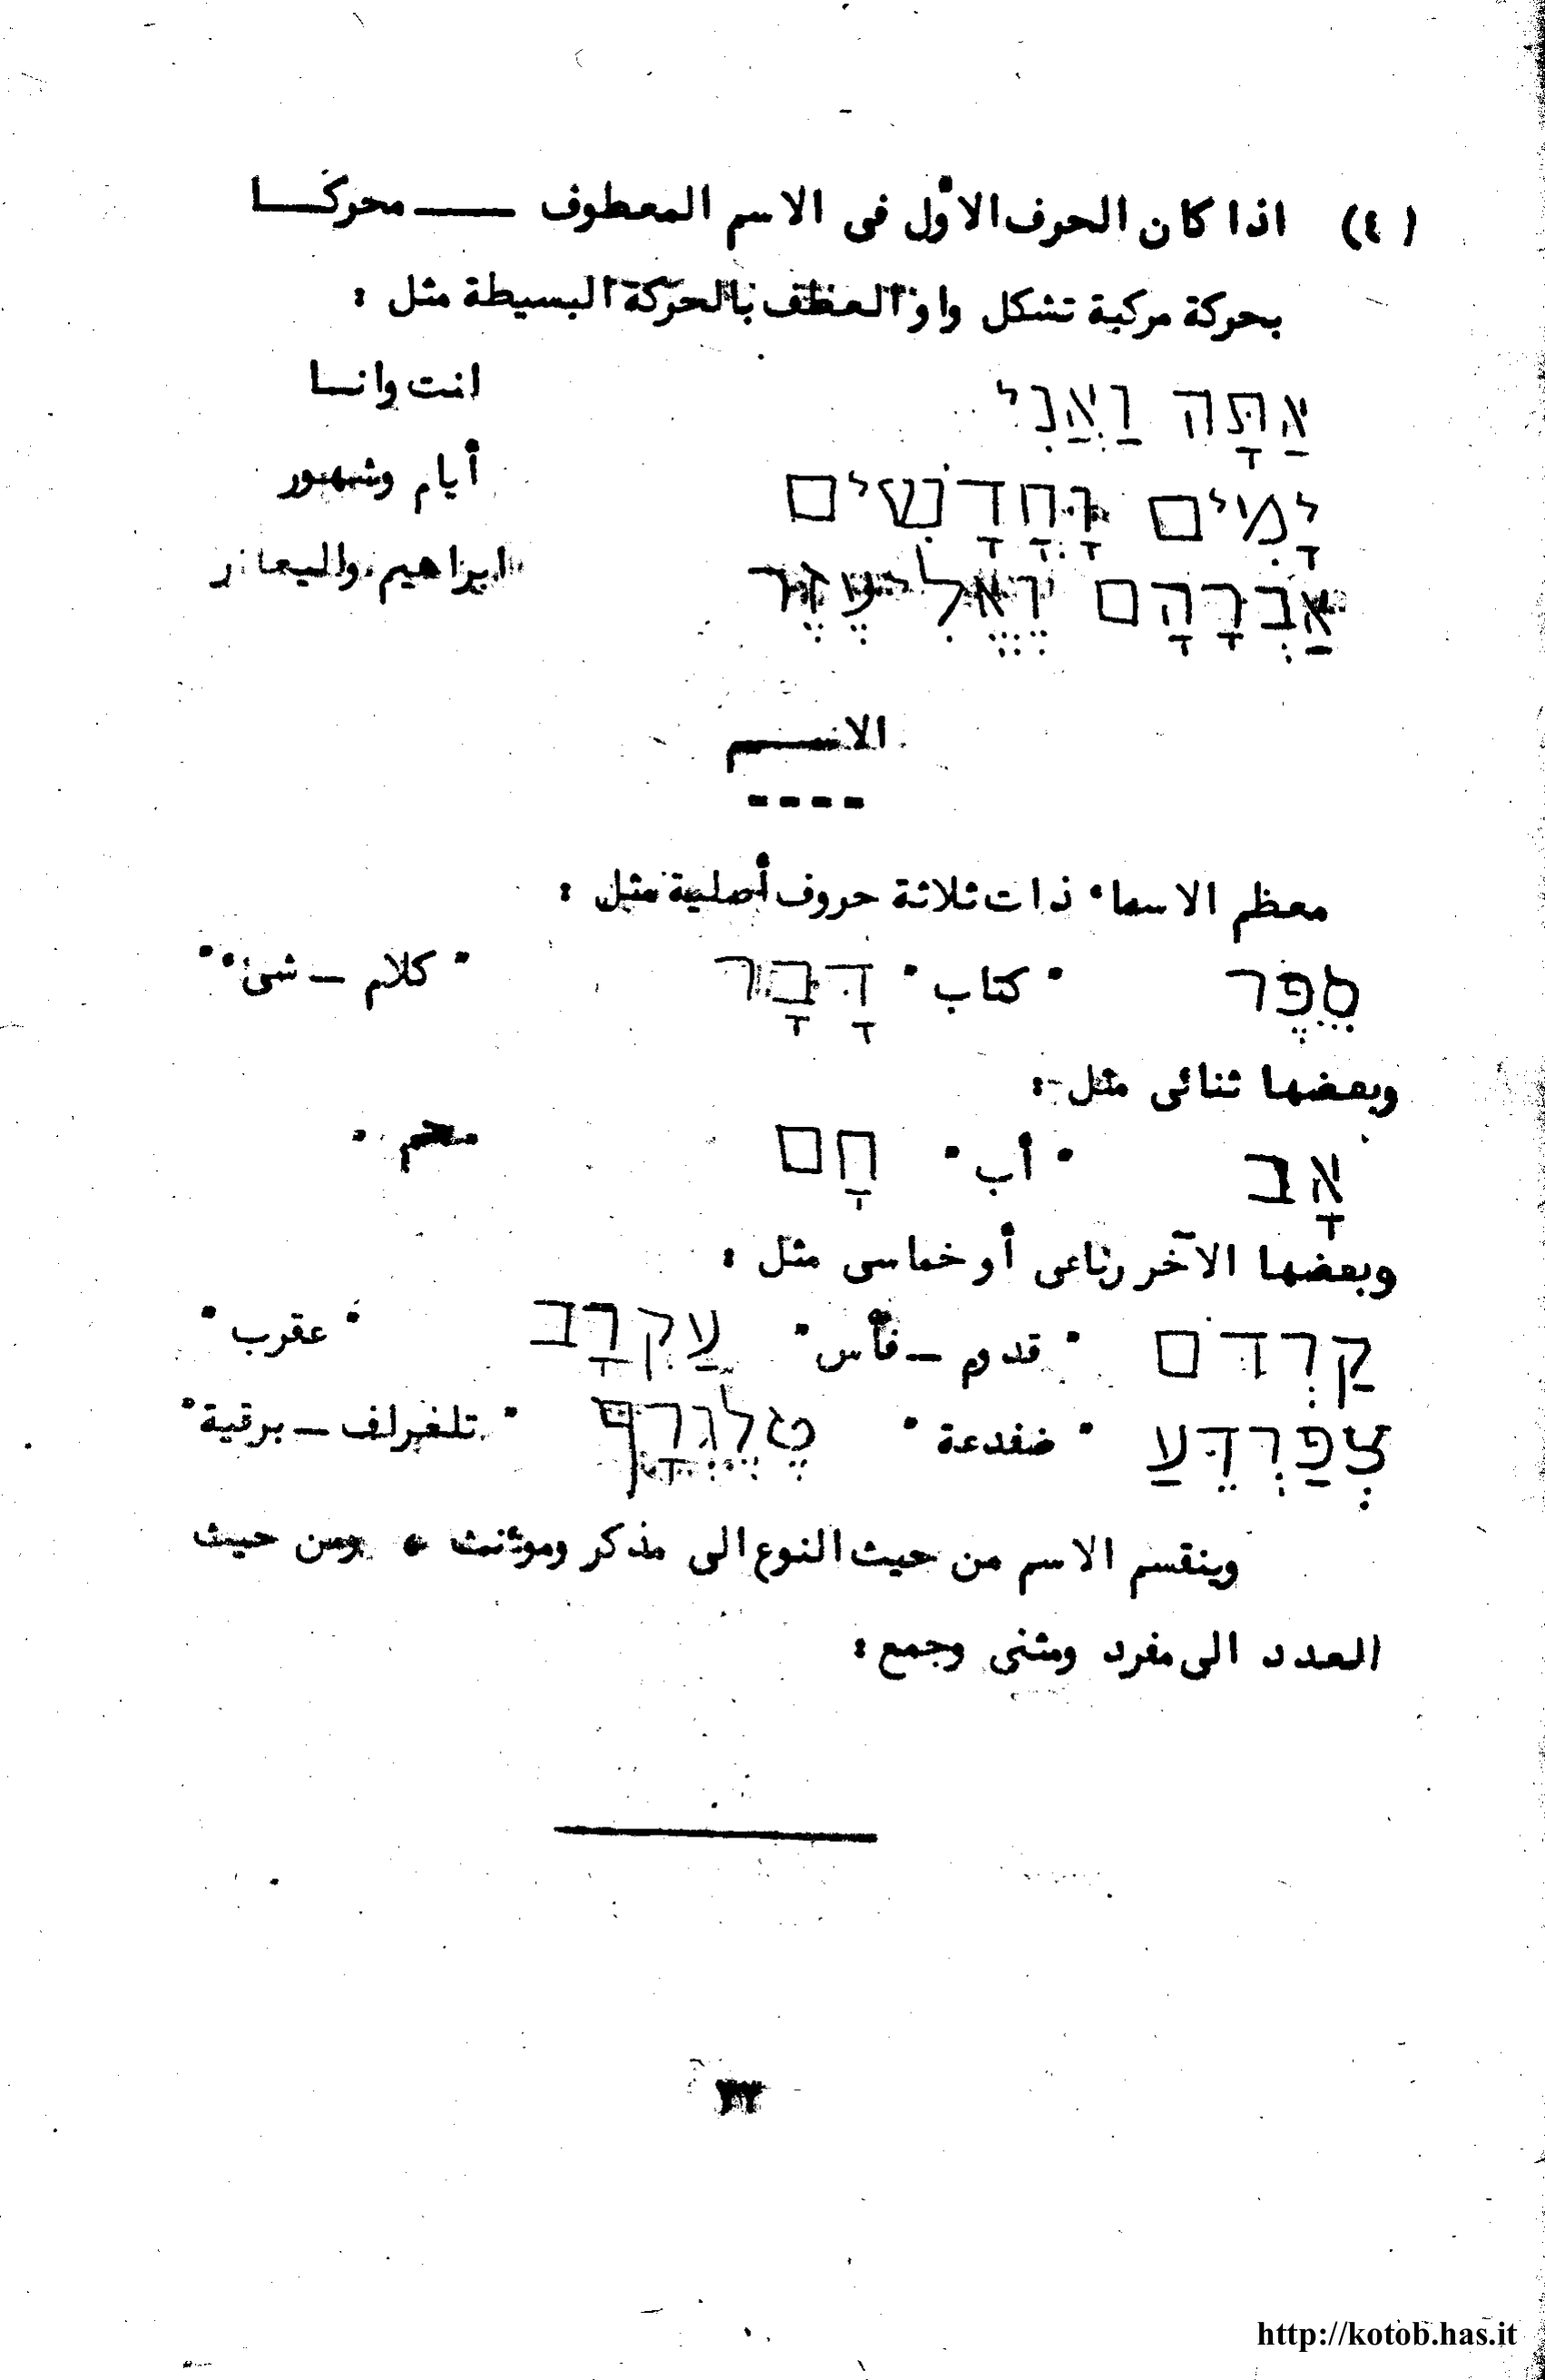 (٤) اذا كان الحرف الأول فى الاسم المعطوف ـــ محركـــا
بحركة مركبة تشكل واو العطف بالحركة البسيطة مثل :
אַתָּה וַאֲנִי انت وانـا
יָמִים וָחֳדָשִׁים أيام وشهور
אַבְרָהָם וֶאֱלִיעֶזֶר ابراهيم واليعازر
الاســـم
معظم الاسماء ذات ثلاثة حروف أصلية مثل :
סֵפֶר " كتاب " דָּבָר " كلام ـ شىء "
وبعضها ثنائى مثل :
אָב " أب " חָם
وبعضها الآخر رباعى أو خماسى مثل :
קַרְדֹּם " قدوم ـ فأس " עַקְרָב " عقرب "
צְפַרְדֵּעַ " ضفدعة " טֶלֶגְרָף " تلغراف ـ برقية "
وينقسم الاسم من حيث النوع الى مذكر ومؤنث • ومن حيث
العدد الى مفرد ومثنى وجمع :
http://kotob.has.it